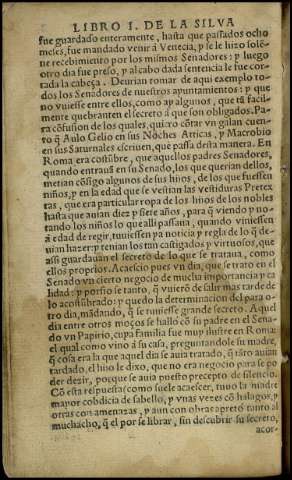 LIBRO I. DE LA SILVA
fue guardado enteramente, hasta que passados ocho
meses, fue mandado venir a Venecia, y se le hizo solē-
ne recebimiento por los mismos Senadores: y luego
otro dia fue preso, y al cabo dada sentencia le fue cor-
tada la cabeça. Deurian tomar de aqui exemplo to-
dos los Senadores de nuestros ayuntamientos: y que
no vuiesse entre ellos, como ay algunos, que tā facil-
mente quebranten el secreto à que son obligados. Pa-
ra cōfusion de los quales, quiero cōtar vn galan cuen-
to q̄ Aulo Gelio en sus Noches Atticas, y Macrobio
en sus Saturnales escriuen, que passa desta manera. En
Roma era costūbre, que aquellos padres Senadores,
quando entrauā en su Senado, los que querian dellos,
metian cōsigo algunos de sus hijos, de los que fuessen
niños, y en la edad que se vestian las vestiduras Pretex
tas, que era particular ropa de los hijos de los nobles
hasta que auian diez y siete años, para q̄ viendo y no-
tando los niños lo que alli passaua, quando viniessen
à edad de regir, tuuiessen ya noticia y regla de lo q̄ de-
uian hazer: y tenian los tan castigados y virtuosos, que
assi guardauan el secreto de lo que se trataua, como
ellos proprios. Acaescio pues vn dia, que se trato en el
Senado vn cierto negocio de mucha importancia y ca
lidad: y porfio se tanto, q̄ vuierō de salir mas tarde de
lo acostūbrado: y quedo la determinacion del para o-
tro dia, mādando, q̄ se tuuiesse grande secreto. Aquel
dia entre otros moços se hallo cō su padre en el Sena-
do vn Papirio, cuya familia fue muy ilustre en Roma:
el qual como vino à su casa, preguntandole su madre,
q̄ cosa era la que aquel dia se auia tratado, q̄ tāto auian
tardado, el hijo le dixo, que no era negocio para se po
der dezir, porque se auia puesto precepto de silencio.
Cō esta respuesta (como suele acaescer, tuuo la madre
mayor cobdicia de sabello, y vnas vezes cō halagos, y
otras con amenazas, y aun con obras apretó tanto al
muchacho, q̄ el por se librar, sin descubrir su secreto,
acor-